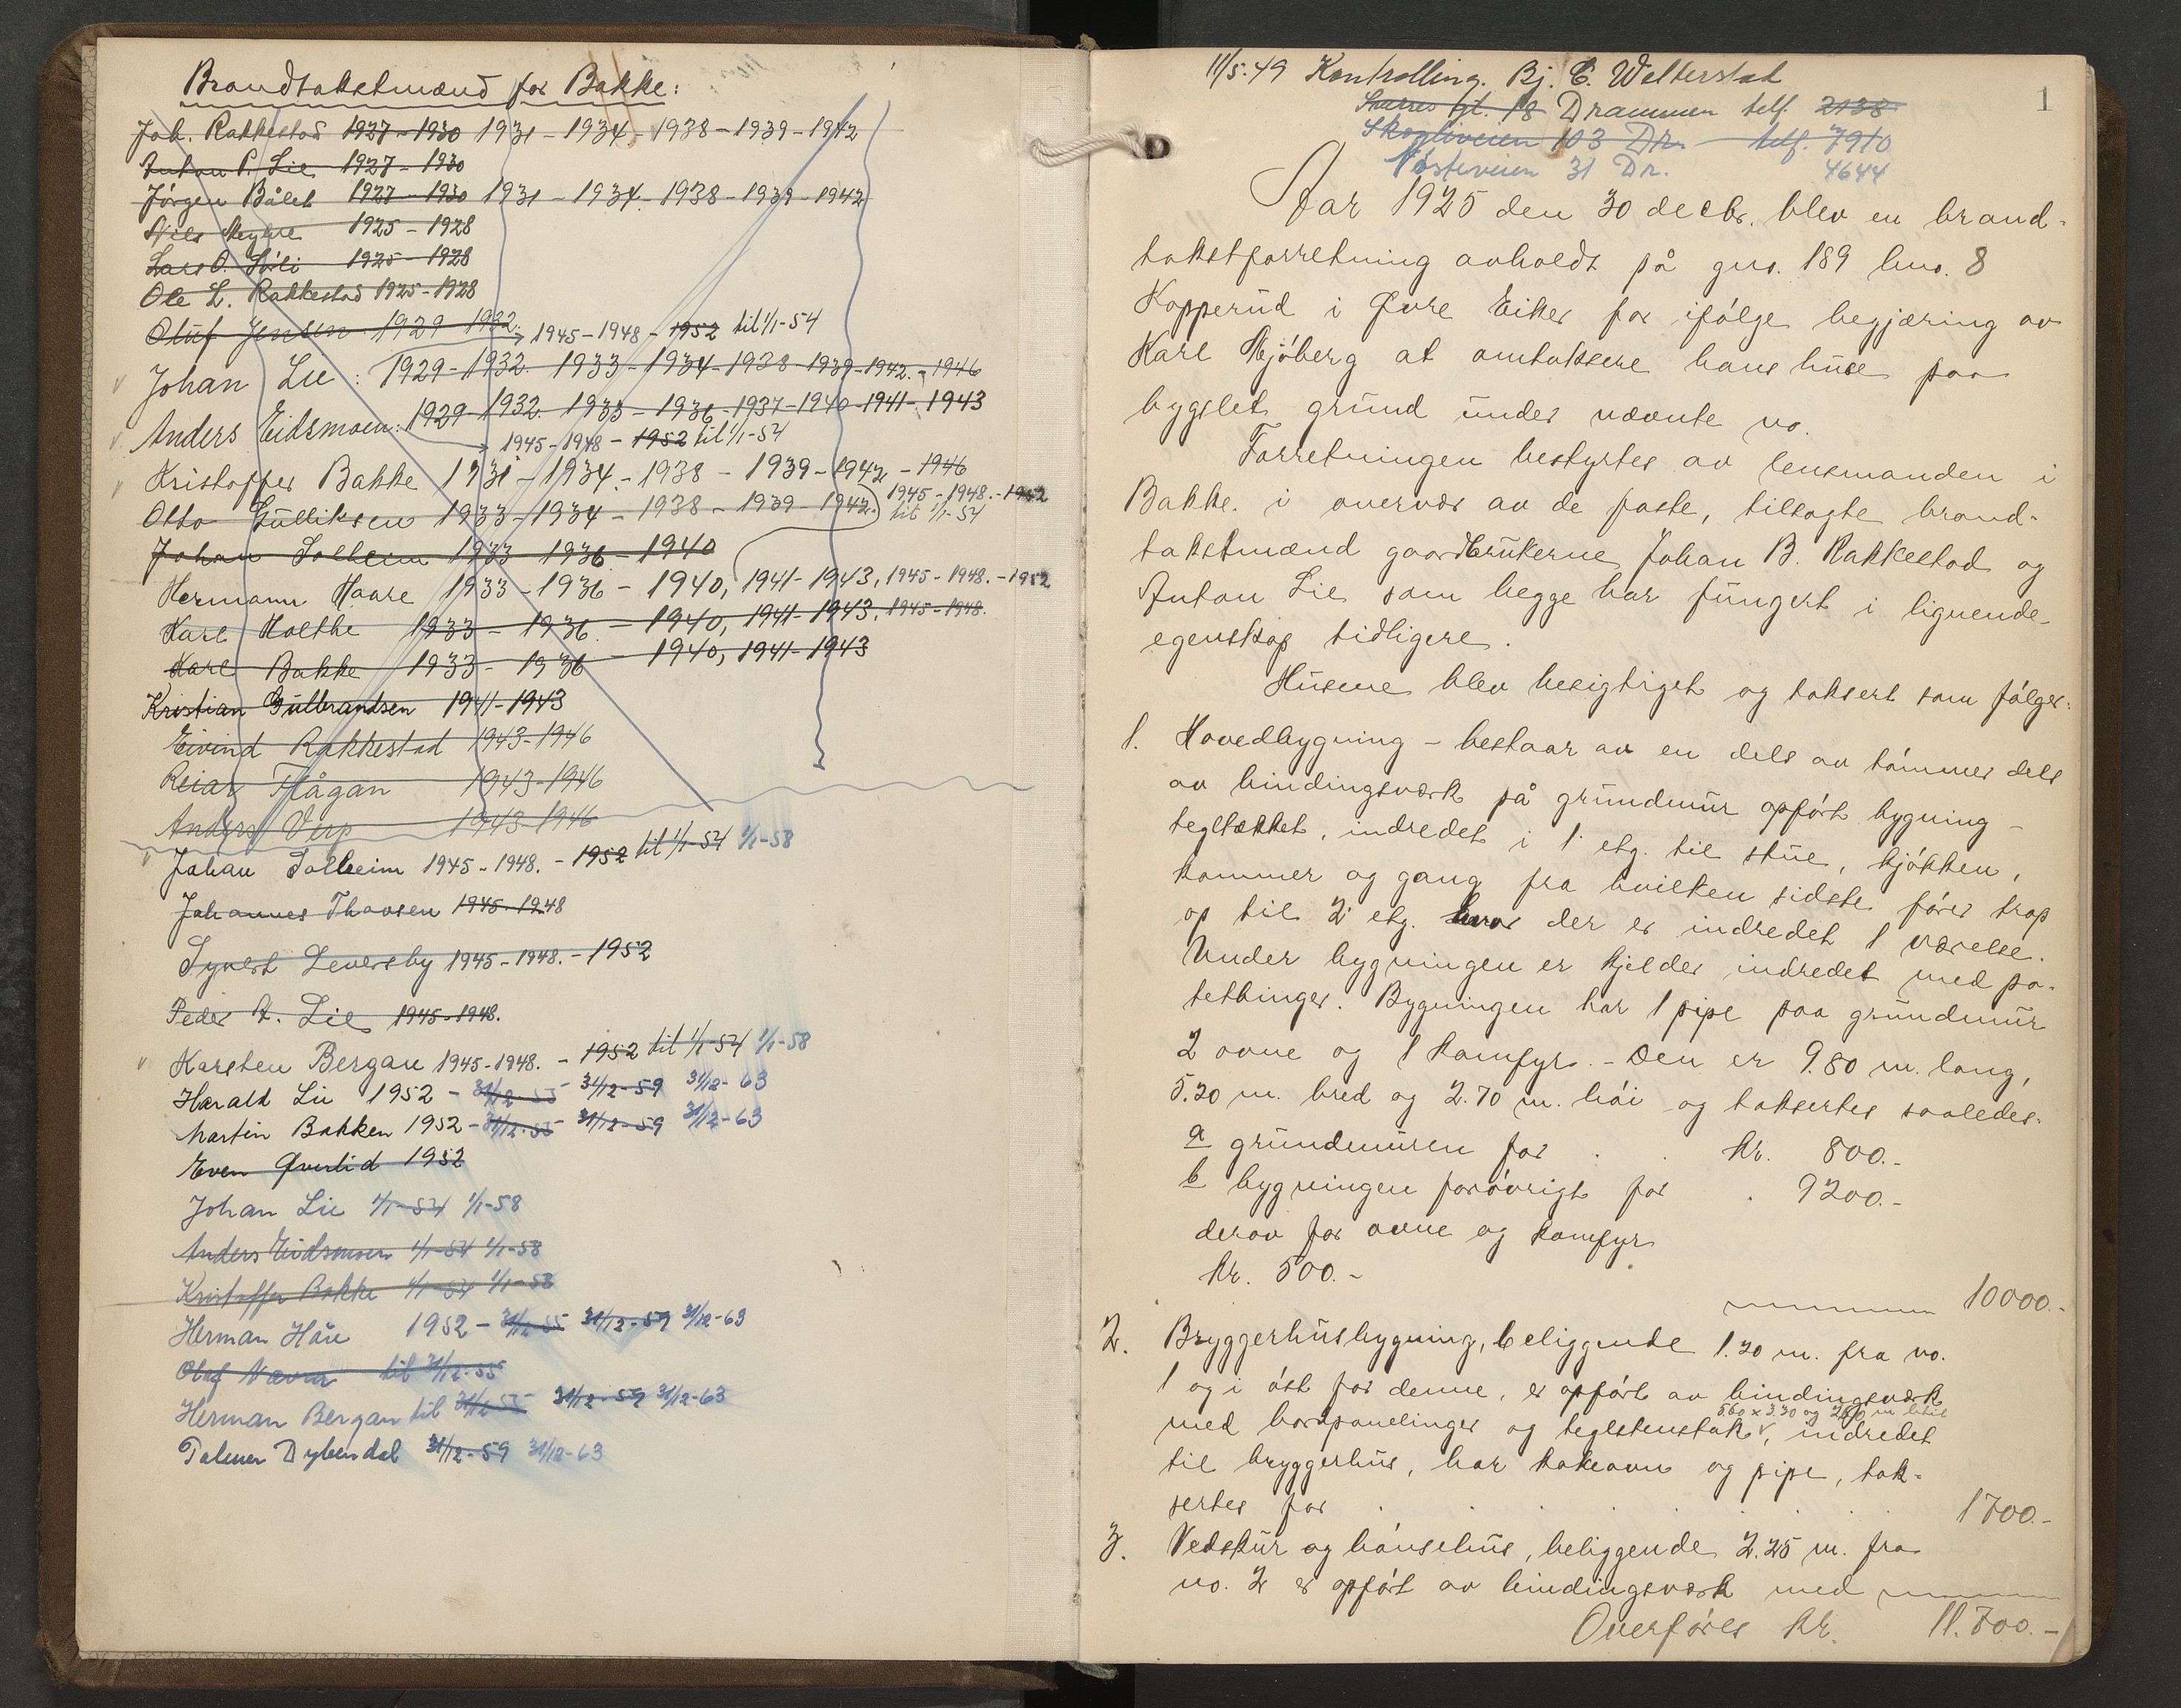 Brandtakstmænd for Bakke:
Joh. Rakkestad 1927-1930 1931-1934-1938-1939-1942
Anton P. Lie 1927-1930
Jörgen Bålet 1927-1930 1931-1934-1938-1939-1942
Nils 1925-1928
Lars O. 1925-1928
Ole L. Rakkestad 1925-1928
Oluf Jensen 1929-1932
1945-1948-1952 til 1/1-54
Johan Lie: 1929-1932 1933-1934-1938-1939-1942.-1946
Anders Eidsmoen: 1929-1932. 1933-1936-1937-1940-1941-1943
1945-1948-1952 til 1/1-54
Kristoffer Bakke 1931-1934-1938-1939-1942-1946
Otto Gulliksen 1933-1934-1938-1939-1942. 1945-1948.-1952
til 1/1-54
Johan Solheim 1933-1936-1940
Hermann Haare 1933-1936-1940, 1941-1943, 1945-1948.-1952
Karl Holthe 1933-1936-1940, 1941-1943, 1945-1948.
Karl Bakke 1933-1936-1940, 1941-1943
Kristian Gulbrandsen 1941-1943
Eivind Rakkestad 1943-1946
Reiar Flågan 1943-1946
Anders Verp 1943-1946
Johan Solheim 1945-1948.-1952 til 1/1-54 1/1-58
Johannes Thorsen 1945-1948
Syvert 1945-1948.-1952
Peder A. Lie 1945-1948.
Karsten Bergan 1945-1948.-1952 til 1/1-54 1/1-58
Harald Lie 1952-31/12-55 31/12-59 31/12-63
Martin Bakken 1952-31/12-55 31/12-59 31/12-63
Even Øverlid 1952
Johan Lie 1/1-54 1/1-58
Anders Eidsmoen 1/1-54 1/1-58
Kristoffer Bakke 1/1-54 1/1-58
Herman Håre 1952-31/12-55 31/12-59 31/12-63
Olaf til 31/12-55
Herman Bergan til 31/12-55 31/12-59 31/12-63
Palmer Dybendal 31/12-59 31/12-63
1
11/5.49 Kontrolling. Bj. C. Welterstad
gt. 18 Drammen telf. 2138
Skogliveien 103 Dr. telf. 7910
31 Dr. 4644
Aar 1925 den 30 decbr. blev en brand-
takstforretning avholdt på gno. 189 bno. 8
Kopperud i Øvre Eiker for ifölge begjæring av
Karl Mjöberg at omtaksere hans huse paa
bygslet grund under nævnte no.
Forretningen bestyrtes av lensmanden i
Bakke. i overvær av de faste, tilsagte brand-
takstmænd gaardbrukerne Johan B. Rakkestad og
Anton Lie som begge har fungert i lignende
egenskap tidligere.
Husene blev besigtiget og taksert som fölger:
1. Hovedbygning - bestaar av en dels av tömmer dels
av bindingsværk på grundmur opfört bygning -
teglstækket, indredet i 1 etg. til stue, kjökken,
kammer og gang fra hvilken sidste förer trap
op til 2 etg. hvor der er indredet 1 værelse.
Under bygningen er kjelder indredet med po-
tetbinger. Bygningen har 1 pipe paa grundmur
2 ovne og 1 komfyr. - Den er 9.80 m. lang,
5.20 m. bred og 2.70 m. höi og taksertes saaledes.
a grundmuren for . . kr. 800.-
b bygningen forövrigt for . 9200.-
derav for ovne og komfyr
kr. 500.-
10000.-
2. Bryggerhusbygning, beliggende 1.20 m. fra no.
1 og i öst for denne, er opfört av bindingsværk
5.60 x 3.30 og m
med bordpanelinger og teglstenstak √, indredet
til bryggerhus, har kakeovn og pipe, tak-
sertes for . . . . . 1700.-
3. Vedskur og hönsehus, beliggende 2.25 m. fra
no. 2 er opfört av bindingsværk med
Overföres kr. 11.700.-